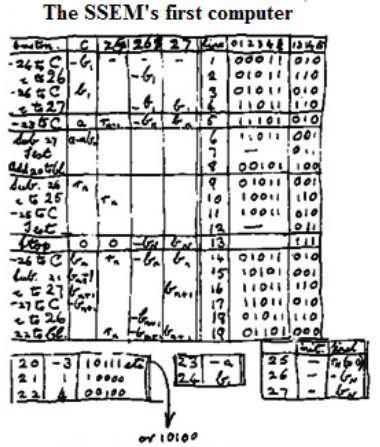 The SSEM's first computer
C 25 26 27 line 01234 131415
-24 to C -b₁ - - - 1 00011 010
c to 26 -b₁ 2 01011 110
-26 to C b₁ 3 01011 010
c to 27 -b₁ b₁ 4 11011 110
-23 to C a 5 11101 010
Sub. 27 6 11011 001
Test 7 - 011
Add 20 to bl. 8 00101 100
Sub. 26 rₙ 9 01011 001
c to 25 rₙ 10 10011 110
-25 to C 11 10011 010
Test 12 - 011
Stop 0 0 13 111
-26 to C bₙ rₙ -bₙ bₙ 14 01011 010
Sub. 21 15 10101 001
c to 27 16 11011 110
-27 to C 17 11011 010
c to 26 18 01011 110
22 to bl. rₙ 19 01101 000
20 -3 10111 etc
21 1 10000
22 4 00100
23 -a
24 b₁
init. final
25 -
26 -
27 -
or 10100